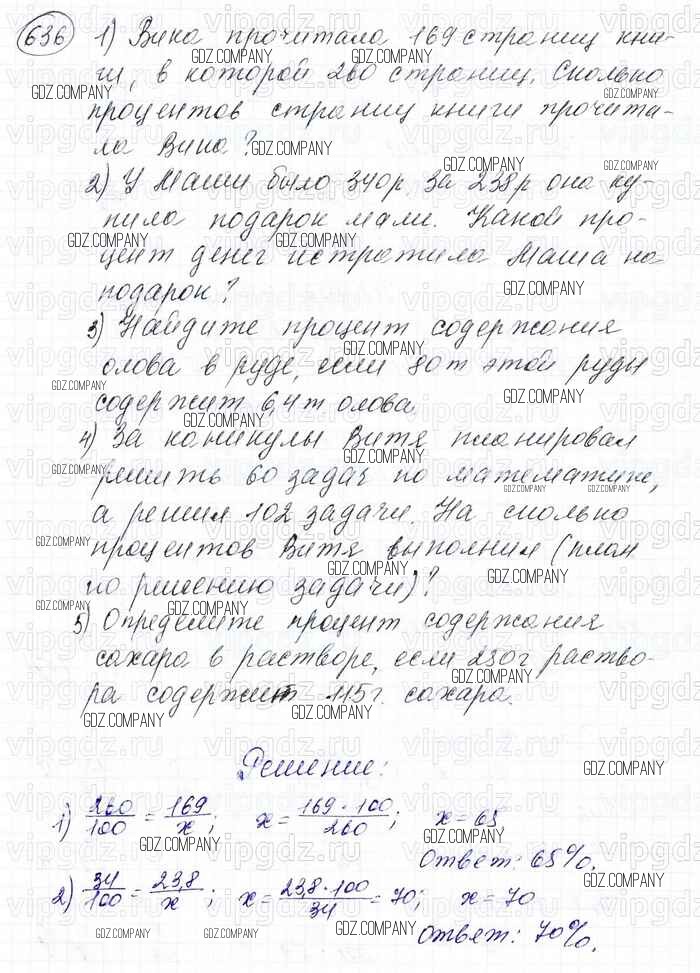 636 1) Вика прочитала 169 страниц кни-
ги, в которой 260 страниц. Сколько
процентов страниц книги прочита-
ла Вика?
2) У Маши было 340 р. За 238 р она ку-
пила подарок маме. Какой про-
цент денег истратила Маша на
подарок?
3) Найдите процент содержания
олова в руде, если 80 т этой руды
содержит 6,4 т олова.
4) За каникулы Витя планировал
решить 60 задач по математике,
а решил 102 задачи. На сколько
процентов Витя выполнил (план
по решению задачи)?
5) Определите процент содержания
сахара в растворе, если 230 г раство-
ра содержит 115 г. сахара.
Решение:
1) 260/100 = 169/x; x = 169·100/260; x = 65
Ответ: 65%.
2) 34/100 = 23,8/x; x = 23,8·100/34 = 70; x = 70
Ответ: 70%.
GDZ.COMPANY
vipgdz.ru